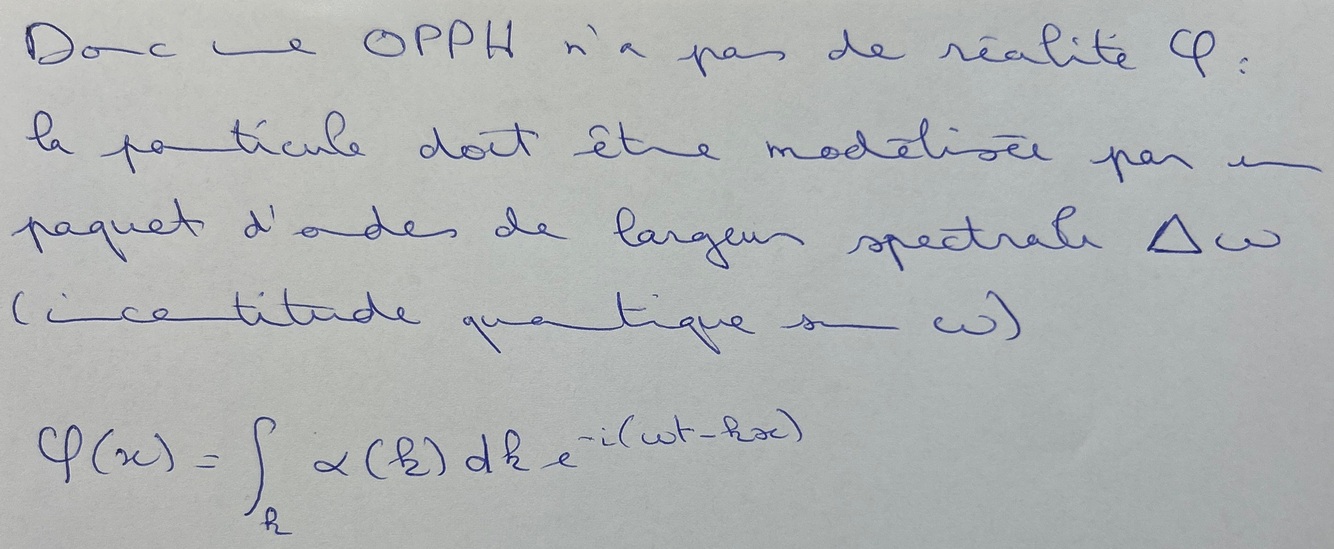 Donc une OPPH n'a pas de réalité φ :
la particule doit être modélisée par un
paquet d'ondes de largeur spectrale Δω
(incertitude quantique sur ω)
φ(x) = ∫_k α(k) dk e^{-i(ωt-kx)}